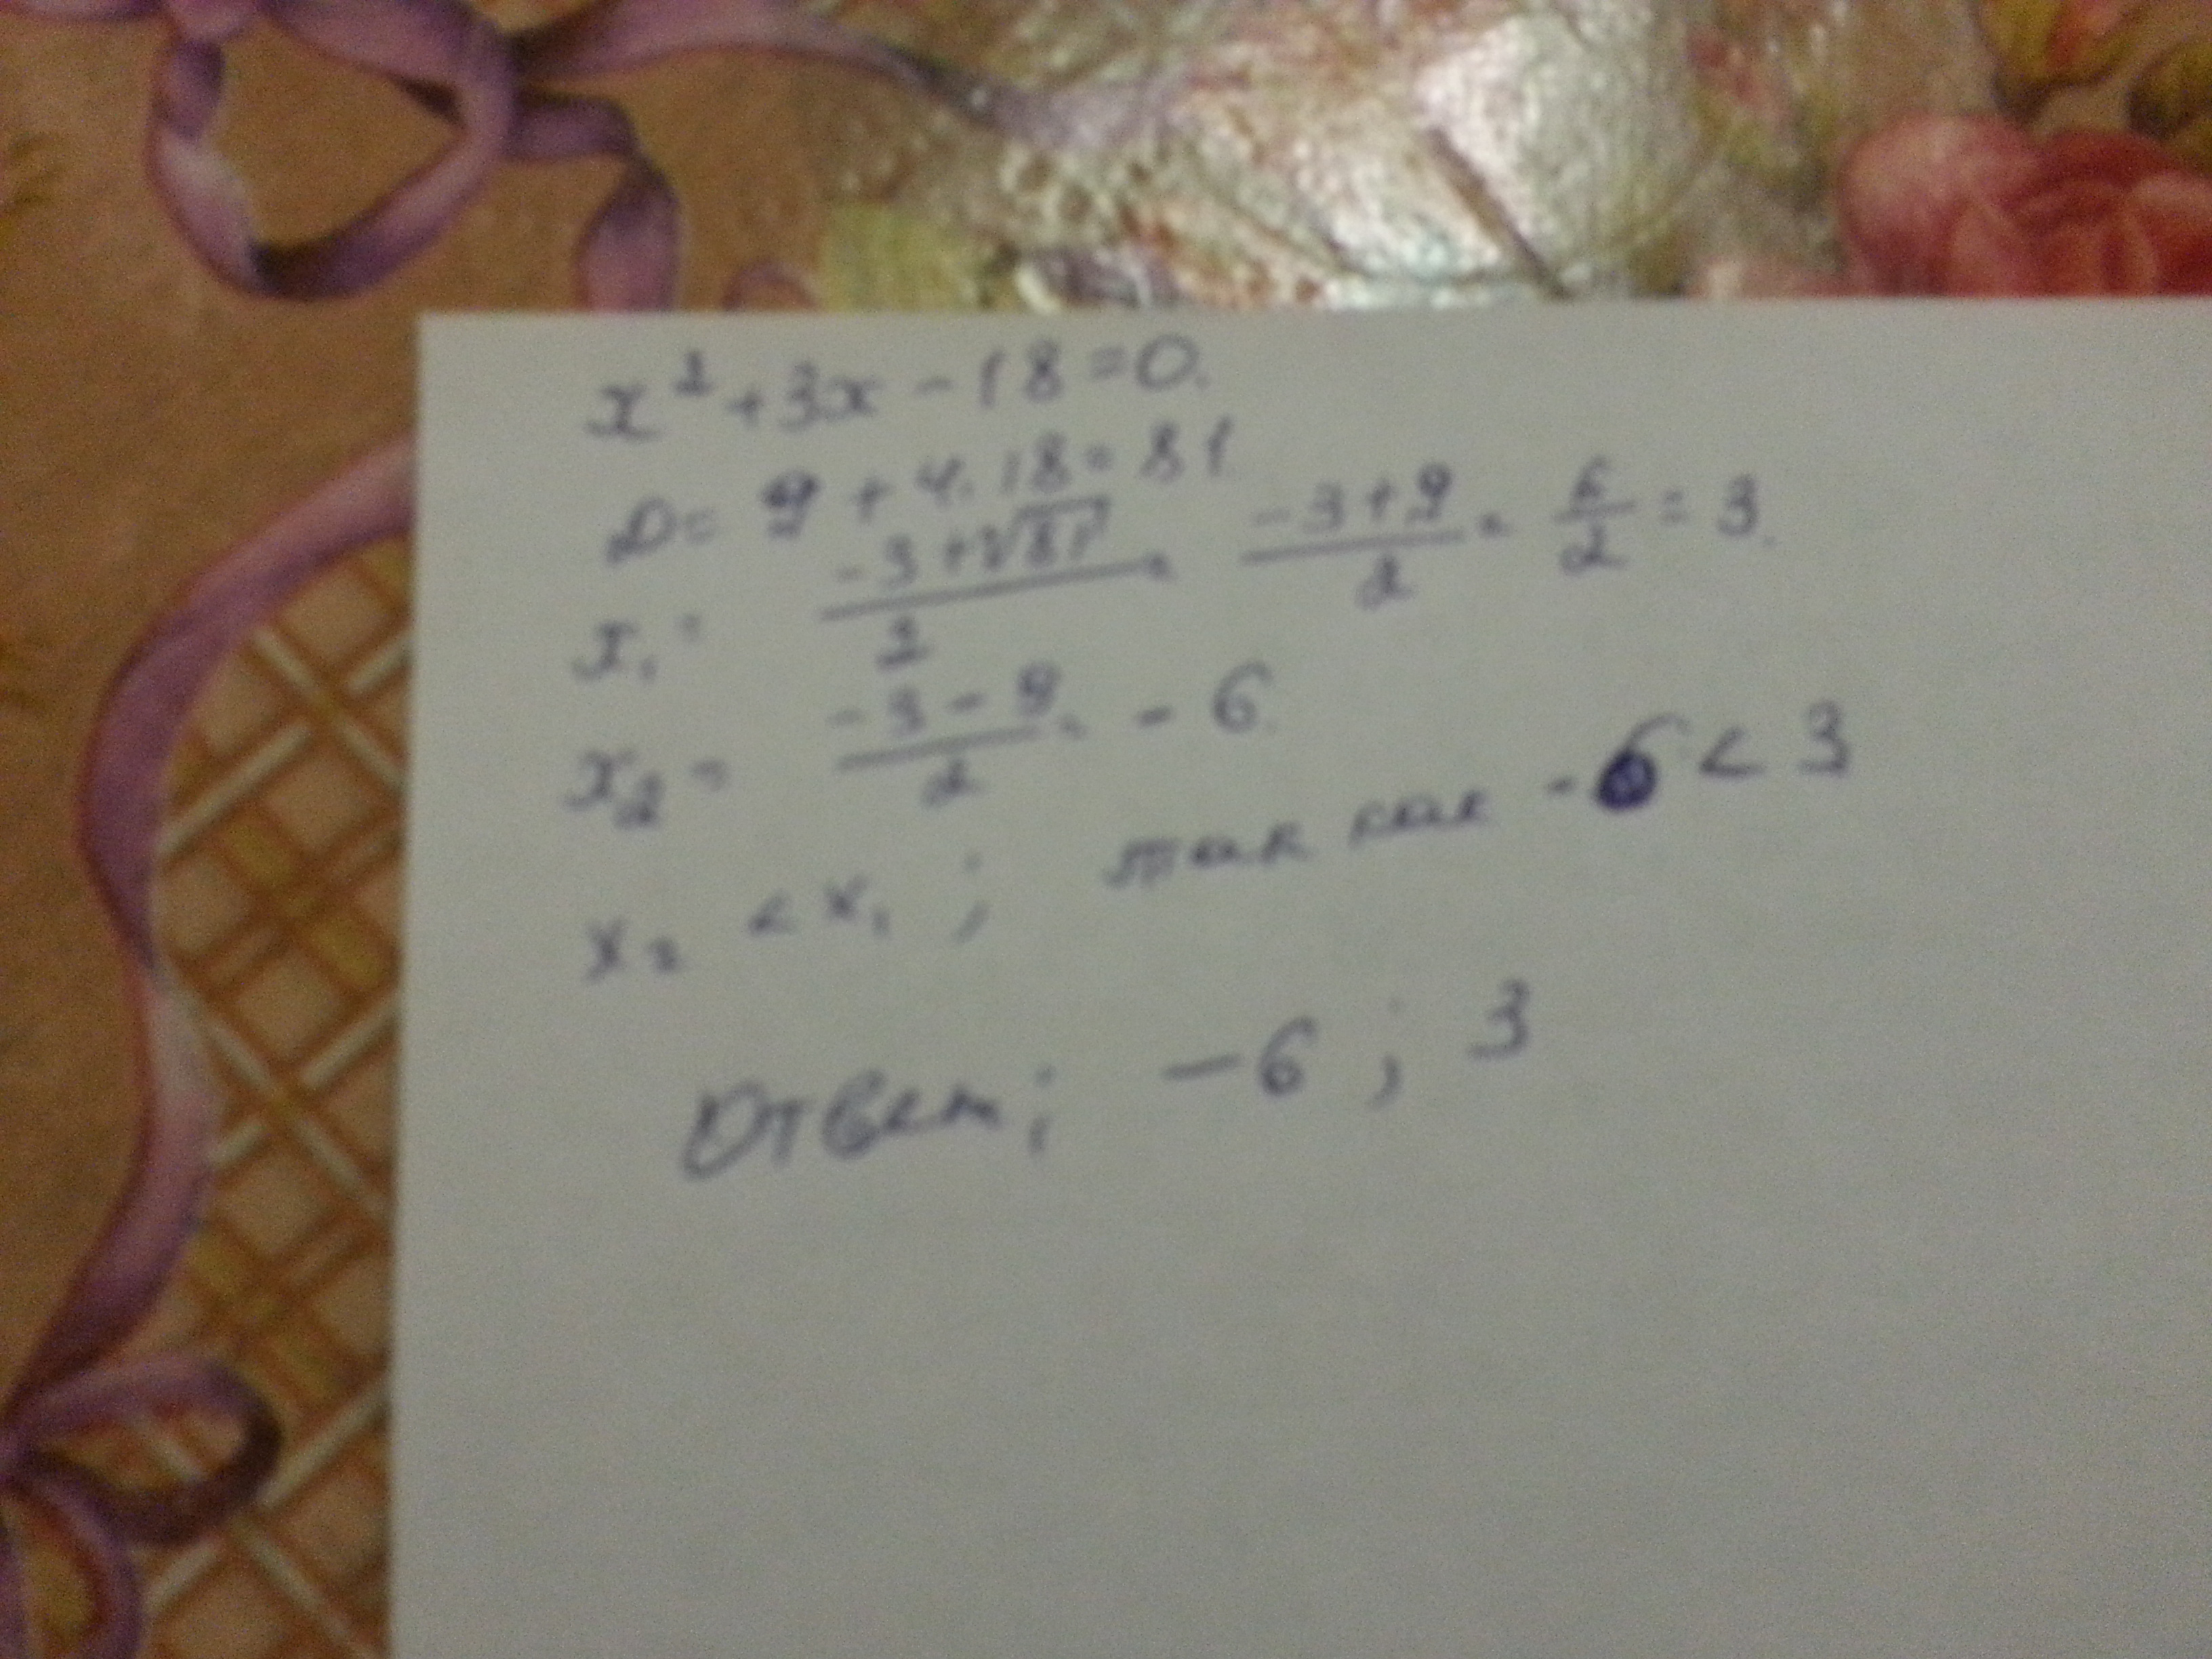 x² + 3x - 18 = 0.
D = 9 + 4 · 18 = 81
x₁ = (-3 + √81)/2 = (-3 + 9)/2 = 6/2 = 3.
x₂ = (-3 - 9)/2 = -6.
x₂ < x₁ ; так как -6 < 3
Ответ; -6 ; 3